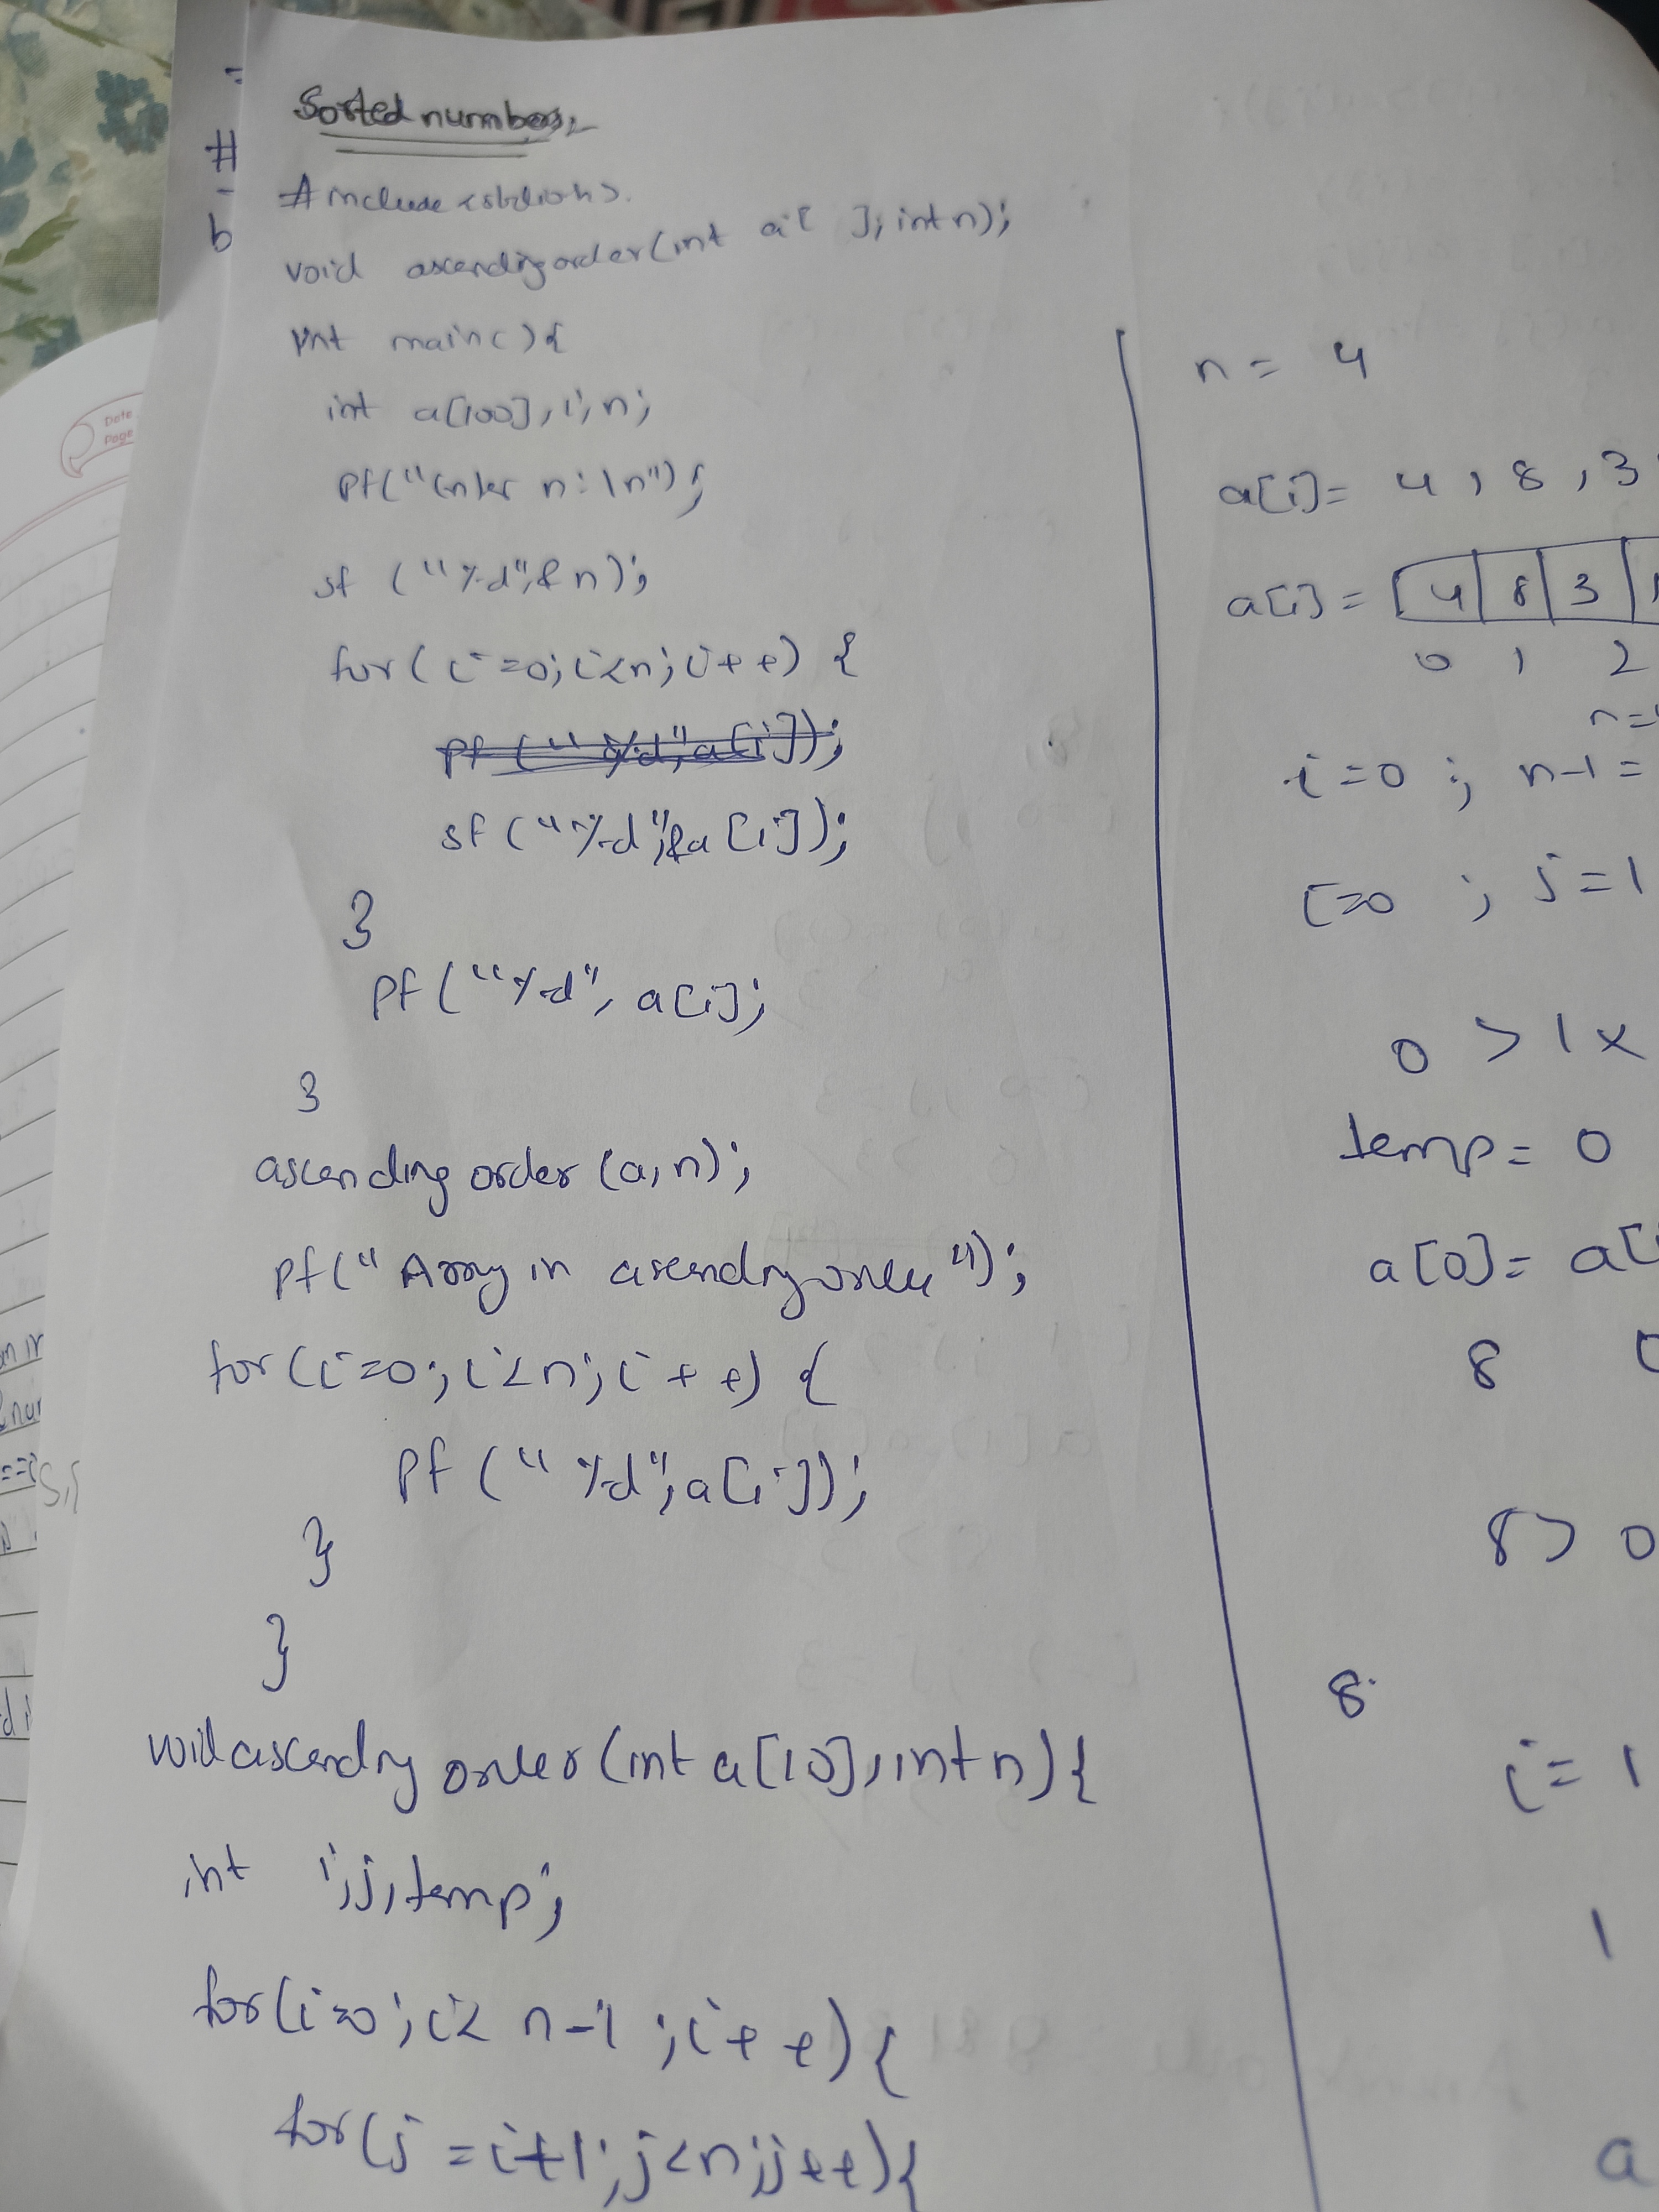 Sorted numbers
#
#include <stdio.h>.
b
void ascendingorder(int a[ ]; int n);
int main(){
int a[100], i, n;
Pf("Enter n: \n");
sf ("%d",& n);
for( i=0; i<n; i++) {
pf ("%d", a[i]);
sf ("%d",&a [i]);
}
Pf ("%d", a[i];
}
ascending order (a, n);
Pf(" Array in ascending order ");
for (i=0; i<n; i++) {
Pf (" %d", a[i]);
}
}
void ascending order (int a[10], int n) {
int i, j, temp;
for(i=0; i< n-1 ; i++) {
for(j = i+1; j<n; j++){
n = 4
a[i]= 4, 8, 3
a[i] = 4 8 3
0 1 2
n=
i=0 ; n-1 =
i=0 ; j=1
0 > 1 x
temp= 0
a[0]= a[
8
8> 0
8
i= 1
1
a
Date
Page